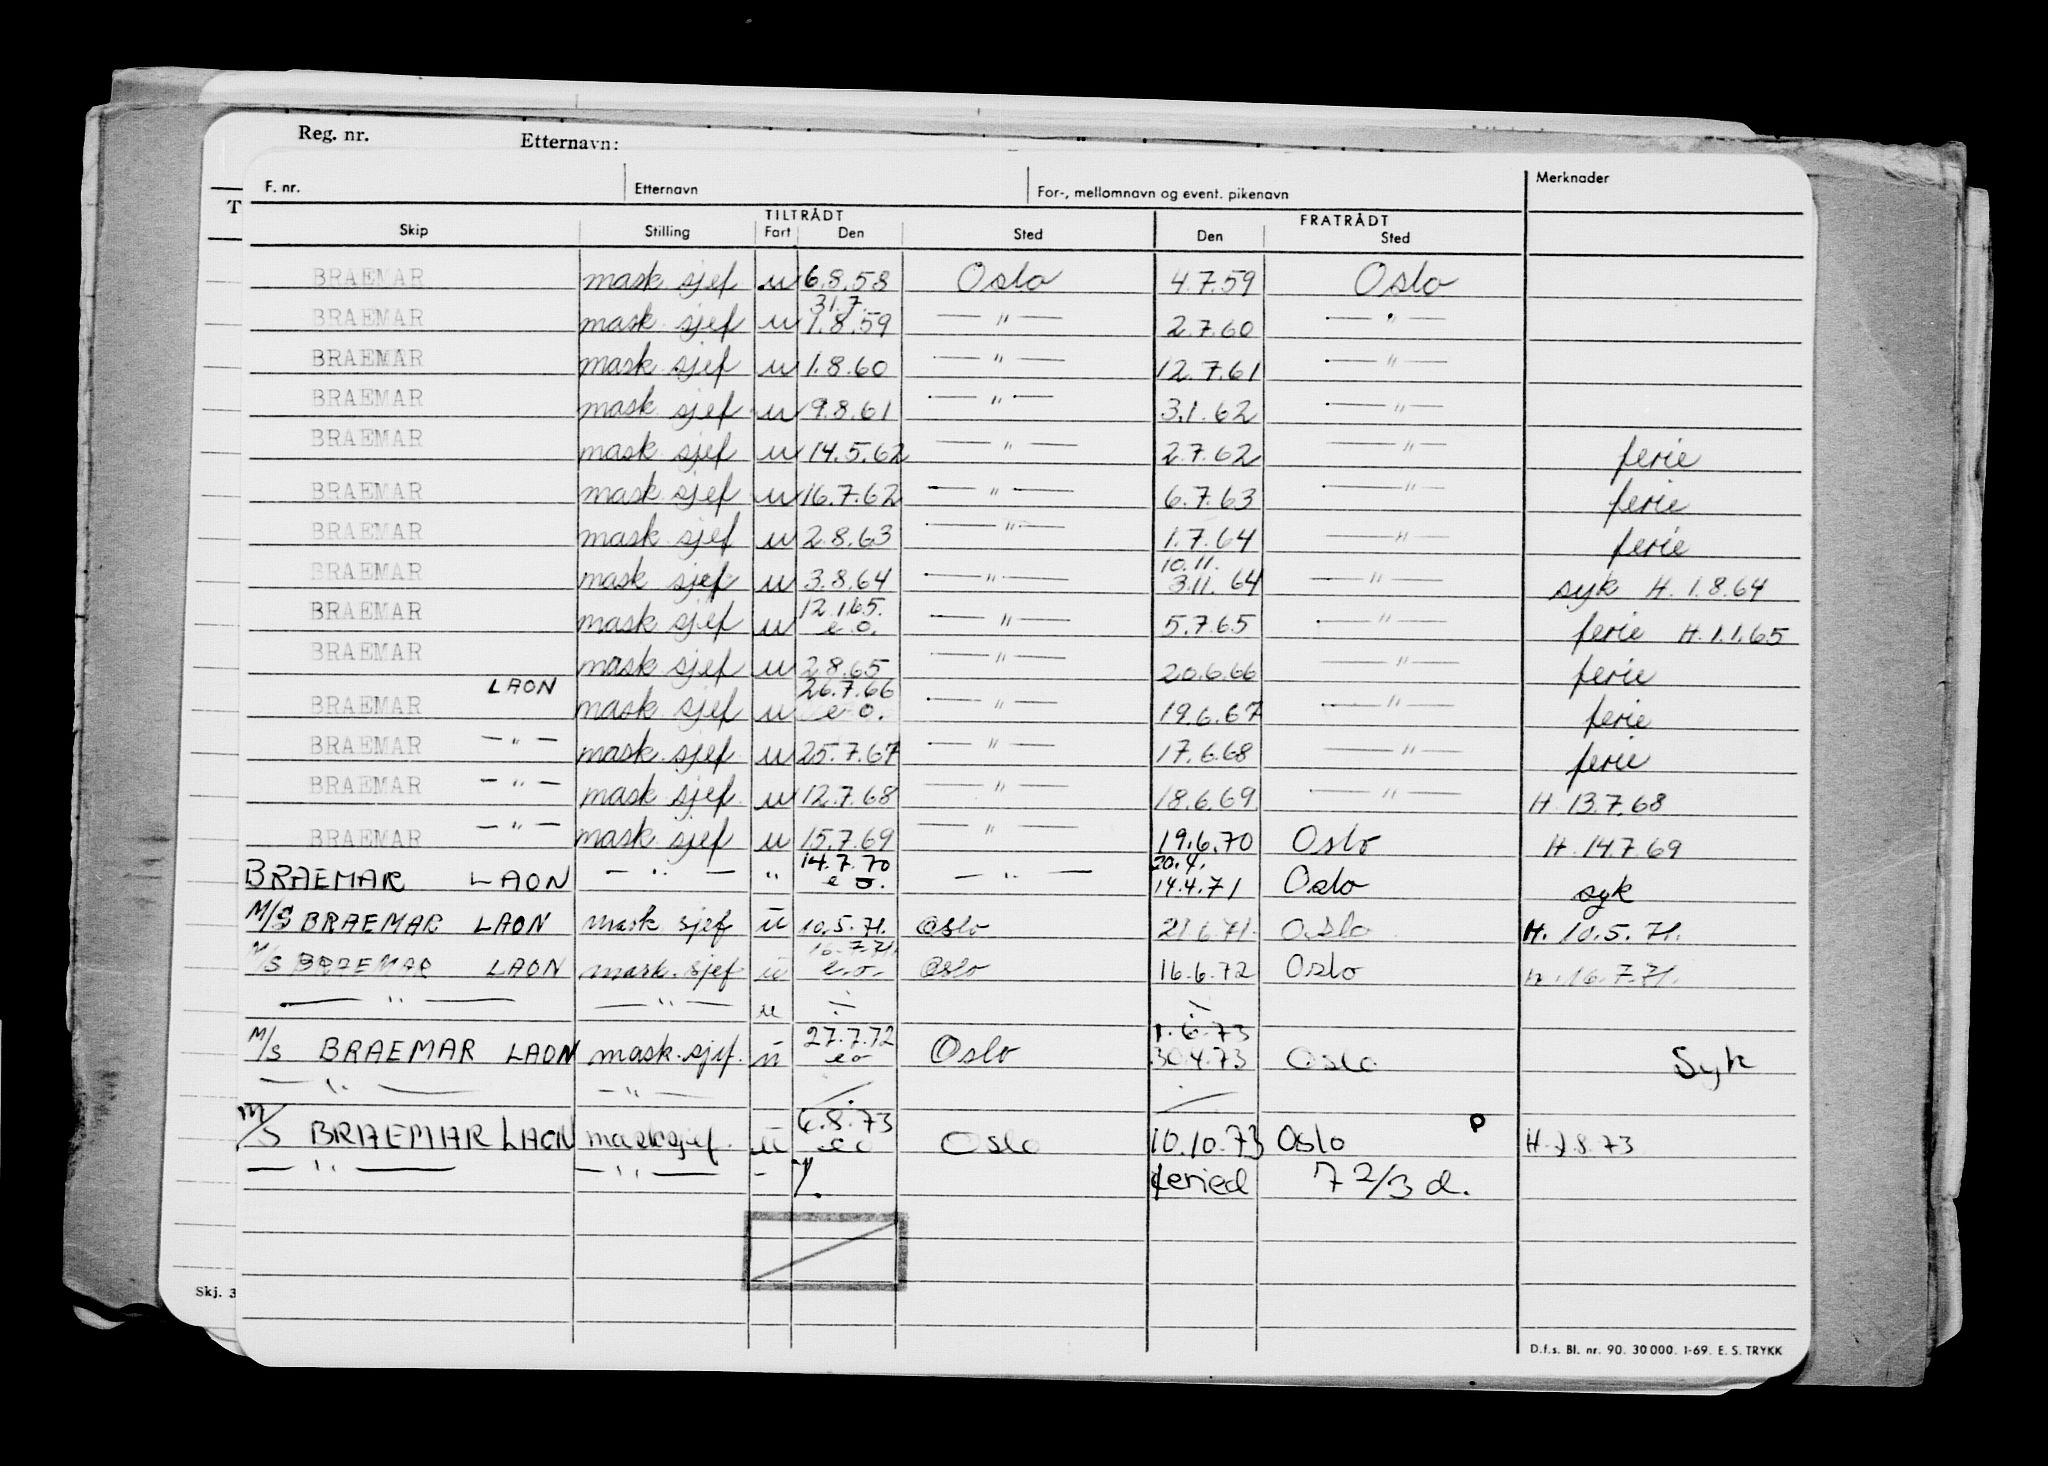 Reg. nr. Etternavn:
F. nr. Etternavn For-, mellomnavn og event. pikenavn Merknader
T TILTRÅDT FRATRÅDT
Skip Stilling Fart Den Sted Den Sted
BRAEMAR mask sjef u 6.8.58 Oslo 4.7.59 Oslo
31.7.
BRAEMAR mask. sjef u 1.8.59 — " — 2.7.60 — " —
BRAEMAR mask sjef u 1.8.60 — " — 12.7.61 — " —
BRAEMAR mask sjef u 9.8.61 — " — 3.1.62 — " —
BRAEMAR mask sjef u 14.5.62 — " — 2.7.62 — " — ferie
BRAEMAR mask sjef u 16.7.62 — " — 6.7.63 — " — ferie
BRAEMAR mask. sjef u 2.8.63 — " — 1.7.64 — " — ferie
10.11.
BRAEMAR mask sjef u 3.8.64 — " — 3.11.64 — " — syk H. 1.8.64
12.1.65.
BRAEMAR mask. sjef u e.o. — " — 5.7.65 — " — ferie H.1.1.65
BRAEMAR mask sjef u 2.8.65 — " — 20.6.66 — " — ferie
LAON 26.7.66
BRAEMAR mask sjef u e o. — " — 19.6.67 — " — ferie
BRAEMAR — " — mask. sjef u 25.7.67 — " — 17.6.68 — " — ferie
BRAEMAR — " — mask sjef. u 12.7.68 — " — 18.6.69 — " — H. 13.7.68
BRAEMAR — " — mask sjef u 15.7.69 — " — 19.6.70 Oslo H. 14.7.69
14.7.70 20.4.
BRAEMAR LAON — " — " e o. — " — 14.4.71 Oslo syk
M/S BRAEMAR LAON mask sjef u 10.5.71. Oslo 21.6.71. Oslo H. 10.5.71.
16.7.71.
M/S BRAEMAR LAON mask. sjef u e.o. Oslo 16.6.72 Oslo H. 16.7.71.
— " — — " — u ÷ ÷
27.7.72 1.6.73
M/S BRAEMAR LAON mask.sjef. u eo Oslo 30.4.73 Oslo Syk
— " — — " —
6.8.73 P
M/S BRAEMAR LAON mask sjef. u eo Oslo 10.10.73 Oslo H. 2.8.73
— " — — " — -
feried 7 2/3 d.
Skj. 3
D.f.s. Bl. nr. 90. 30000. 1-69. E. S. TRYKK